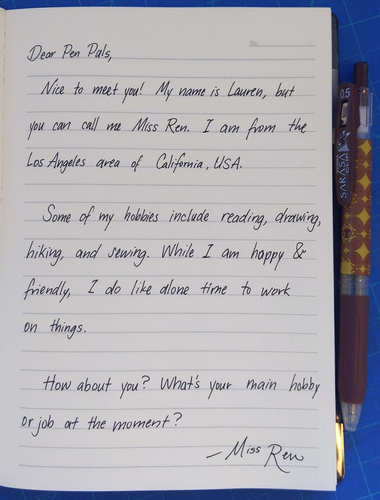 Dear Pen Pals,
Nice to meet you! My name is Lauren, but
you can call me Miss Ren. I am from the
Los Angeles area of California, USA.
Some of my hobbies include reading, drawing,
hiking, and sewing. While I am happy &
friendly, I do like alone time to work
on things.
How about you? What's your main hobby
or job at the moment?
— Miss Ren
0.5
SARASA